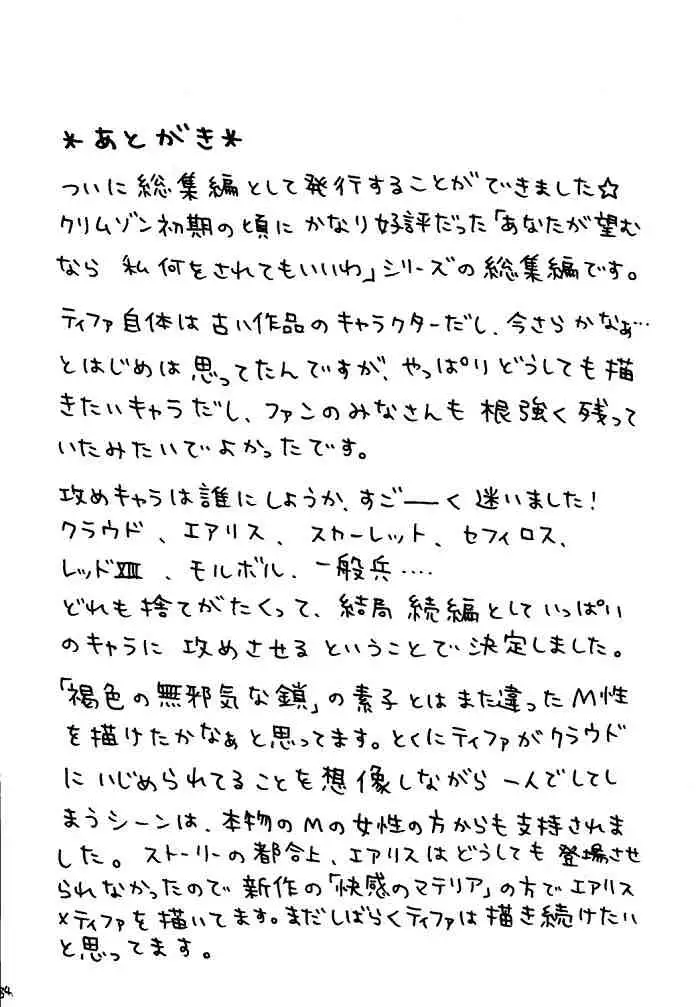 *あとがき*
ついに総集編として発行することができました☆
クリムゾン初期の頃にかなり好評だった「あなたが望む
なら 私何をされてもいいわ」シリーズの総集編です。
ティファ自体は古い作品のキャラクターだし、今さらかなぁ…
とはじめは思ってたんですが、やっぱりどうしても描
きたいキャラだし、ファンのみなさんも根強く残って
いたみたいでよかったです。
攻めキャラは誰にしようか、すご――く迷いました!
クラウド、エアリス、スカーレット、セフィロス、
レッドXIII、モルボル、一般兵‥‥
どれも捨てがたくって、結局続編としていっぱい
のキャラに攻めさせるということで決定しました。
「褐色の無邪気な鎖」の素子とはまた違ったM性
を描けたかなぁと思ってます。とくにティファがクラウド
にいじめられてることを想像しながら一人でしてし
まうシーンは、本物のMの女性の方からも支持されま
した。ストーリーの都合上、エアリスはどうしても登場させ
られなかったので新作の「快感のマテリア」の方でエアリス
×ティファを描いてます。まだしばらくティファは描き続けたい
と思ってます。